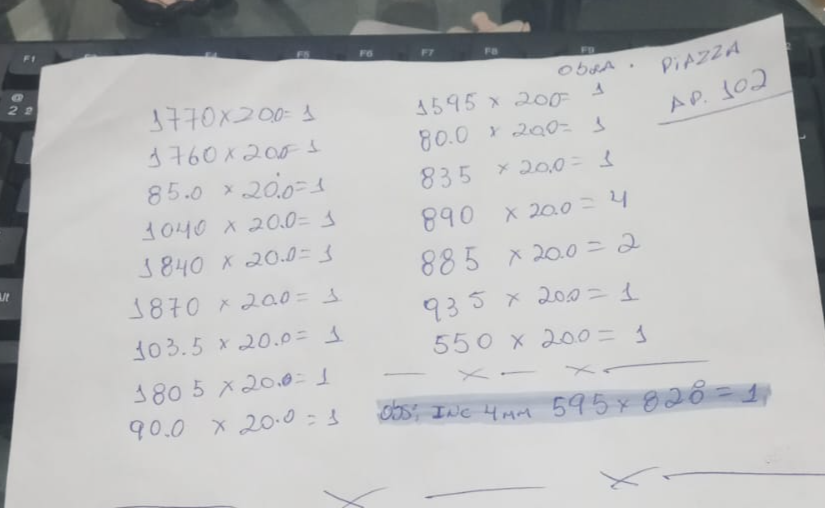 OBRA. PIAZZA
AP. 102
1770 x 20.0= 1
1760 x 20.0= 1
85.0 x 20.0= 1
1040 x 20.0= 1
1840 x 20.0= 1
1870 x 20.0= 1
103.5 x 20.0= 1
1805 x 20.0= 1
90.0 x 20.0= 1
1595 x 200= 1
80.0 x 20.0= 1
835 x 20.0= 1
890 x 20.0= 4
885 x 20.0= 2
935 x 20.0= 1
550 x 20.0= 1
obs: INC 4MM 595 x 828 = 1
F1
F5
F6
F7
F8
F9
@
2